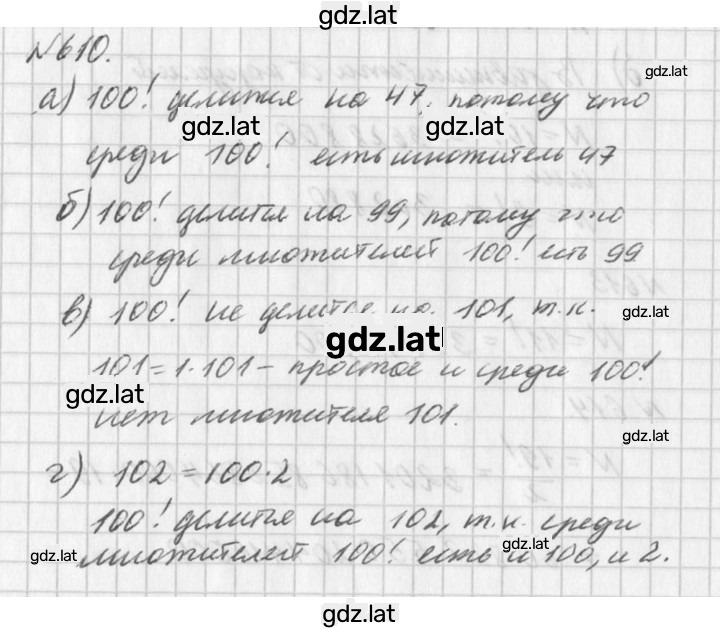 gdz.lat
№610.
gdz.lat
а) 100! делится на 47, потому что
gdz.lat gdz.lat
среди 100! есть множитель 47
б) 100! делится на 99, потому что
среди множителей 100! есть 99
в) 100! не делится на 101, т.к.
gdz.lat
gdz.lat
101=1·101 – простое и среди 100!
gdz.lat
нет множителя 101.
gdz.lat
г) 102=100·2
100! делится на 102, т.к. среди
gdz.lat gdz.lat
множителей 100! есть и 100, и 2.
gdz.lat